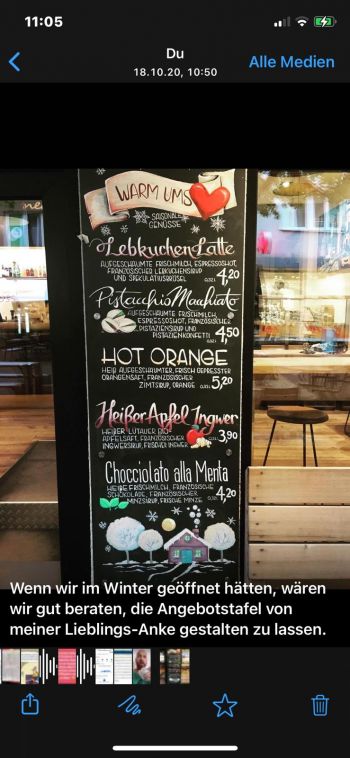 11:05
Du
18.10.20, 10:50
Alle Medien
WARM UMS
SAISONALE
GENÜSSE
Lebkuchen Latte
AUFGESCHÄUMTE FRISCHMILCH, ESPRESSOSHOT,
FRANZÖSISCHER LEBKUCHENSIRUP
UND SPEKULATIUSBRÖSEL 4,20
Pistacchio Machiato
AUFGESCHÄUMTE FRISCHMILCH,
ESPRESSOSHOT, FRANZÖSISCHER
PISTAZIENSIRUP UND
PISTAZIENKONFETTI 4,50
HOT ORANGE
HEIß AUFGESCHÄUMTER, FRISCH GEPRESSTER
ORANGENSAFT, FRANZÖSISCHER
ZIMTSIRUP, ORANGE 5,20
Heißer Apfel Ingwer
HEIßER LÜTAUER BIO
APFELSAFT, FRANZÖSISCHER
INGWERSIRUP, FRISCHER INGWER 3,90
Chocciolato alla Menta
HEIßE FRISCHMILCH, FRANZÖSISCHE
SCHOKOLADE, FRANZÖSISCHER
MINZSIRUP, FRISCHE MINZE 4,20
Wenn wir im Winter geöffnet hätten, wären
wir gut beraten, die Angebotstafel von
meiner Lieblings-Anke gestalten zu lassen.